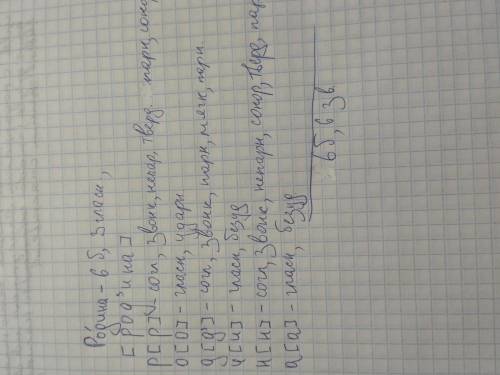 Родина - 6 б, 3 гласн,
[род'ина]
р[р] - согл, звонк, непар, тверд. парн, сонор
о[о] - гласн, ударн
д[д'] - согл, звонк, парн, мягк, парн
и[и] - гласн, безуд
н[н] - согл, звонк, непарн, сонор, тверд, пар
а[а] - гласн, безуд
6 б, 6 зв.